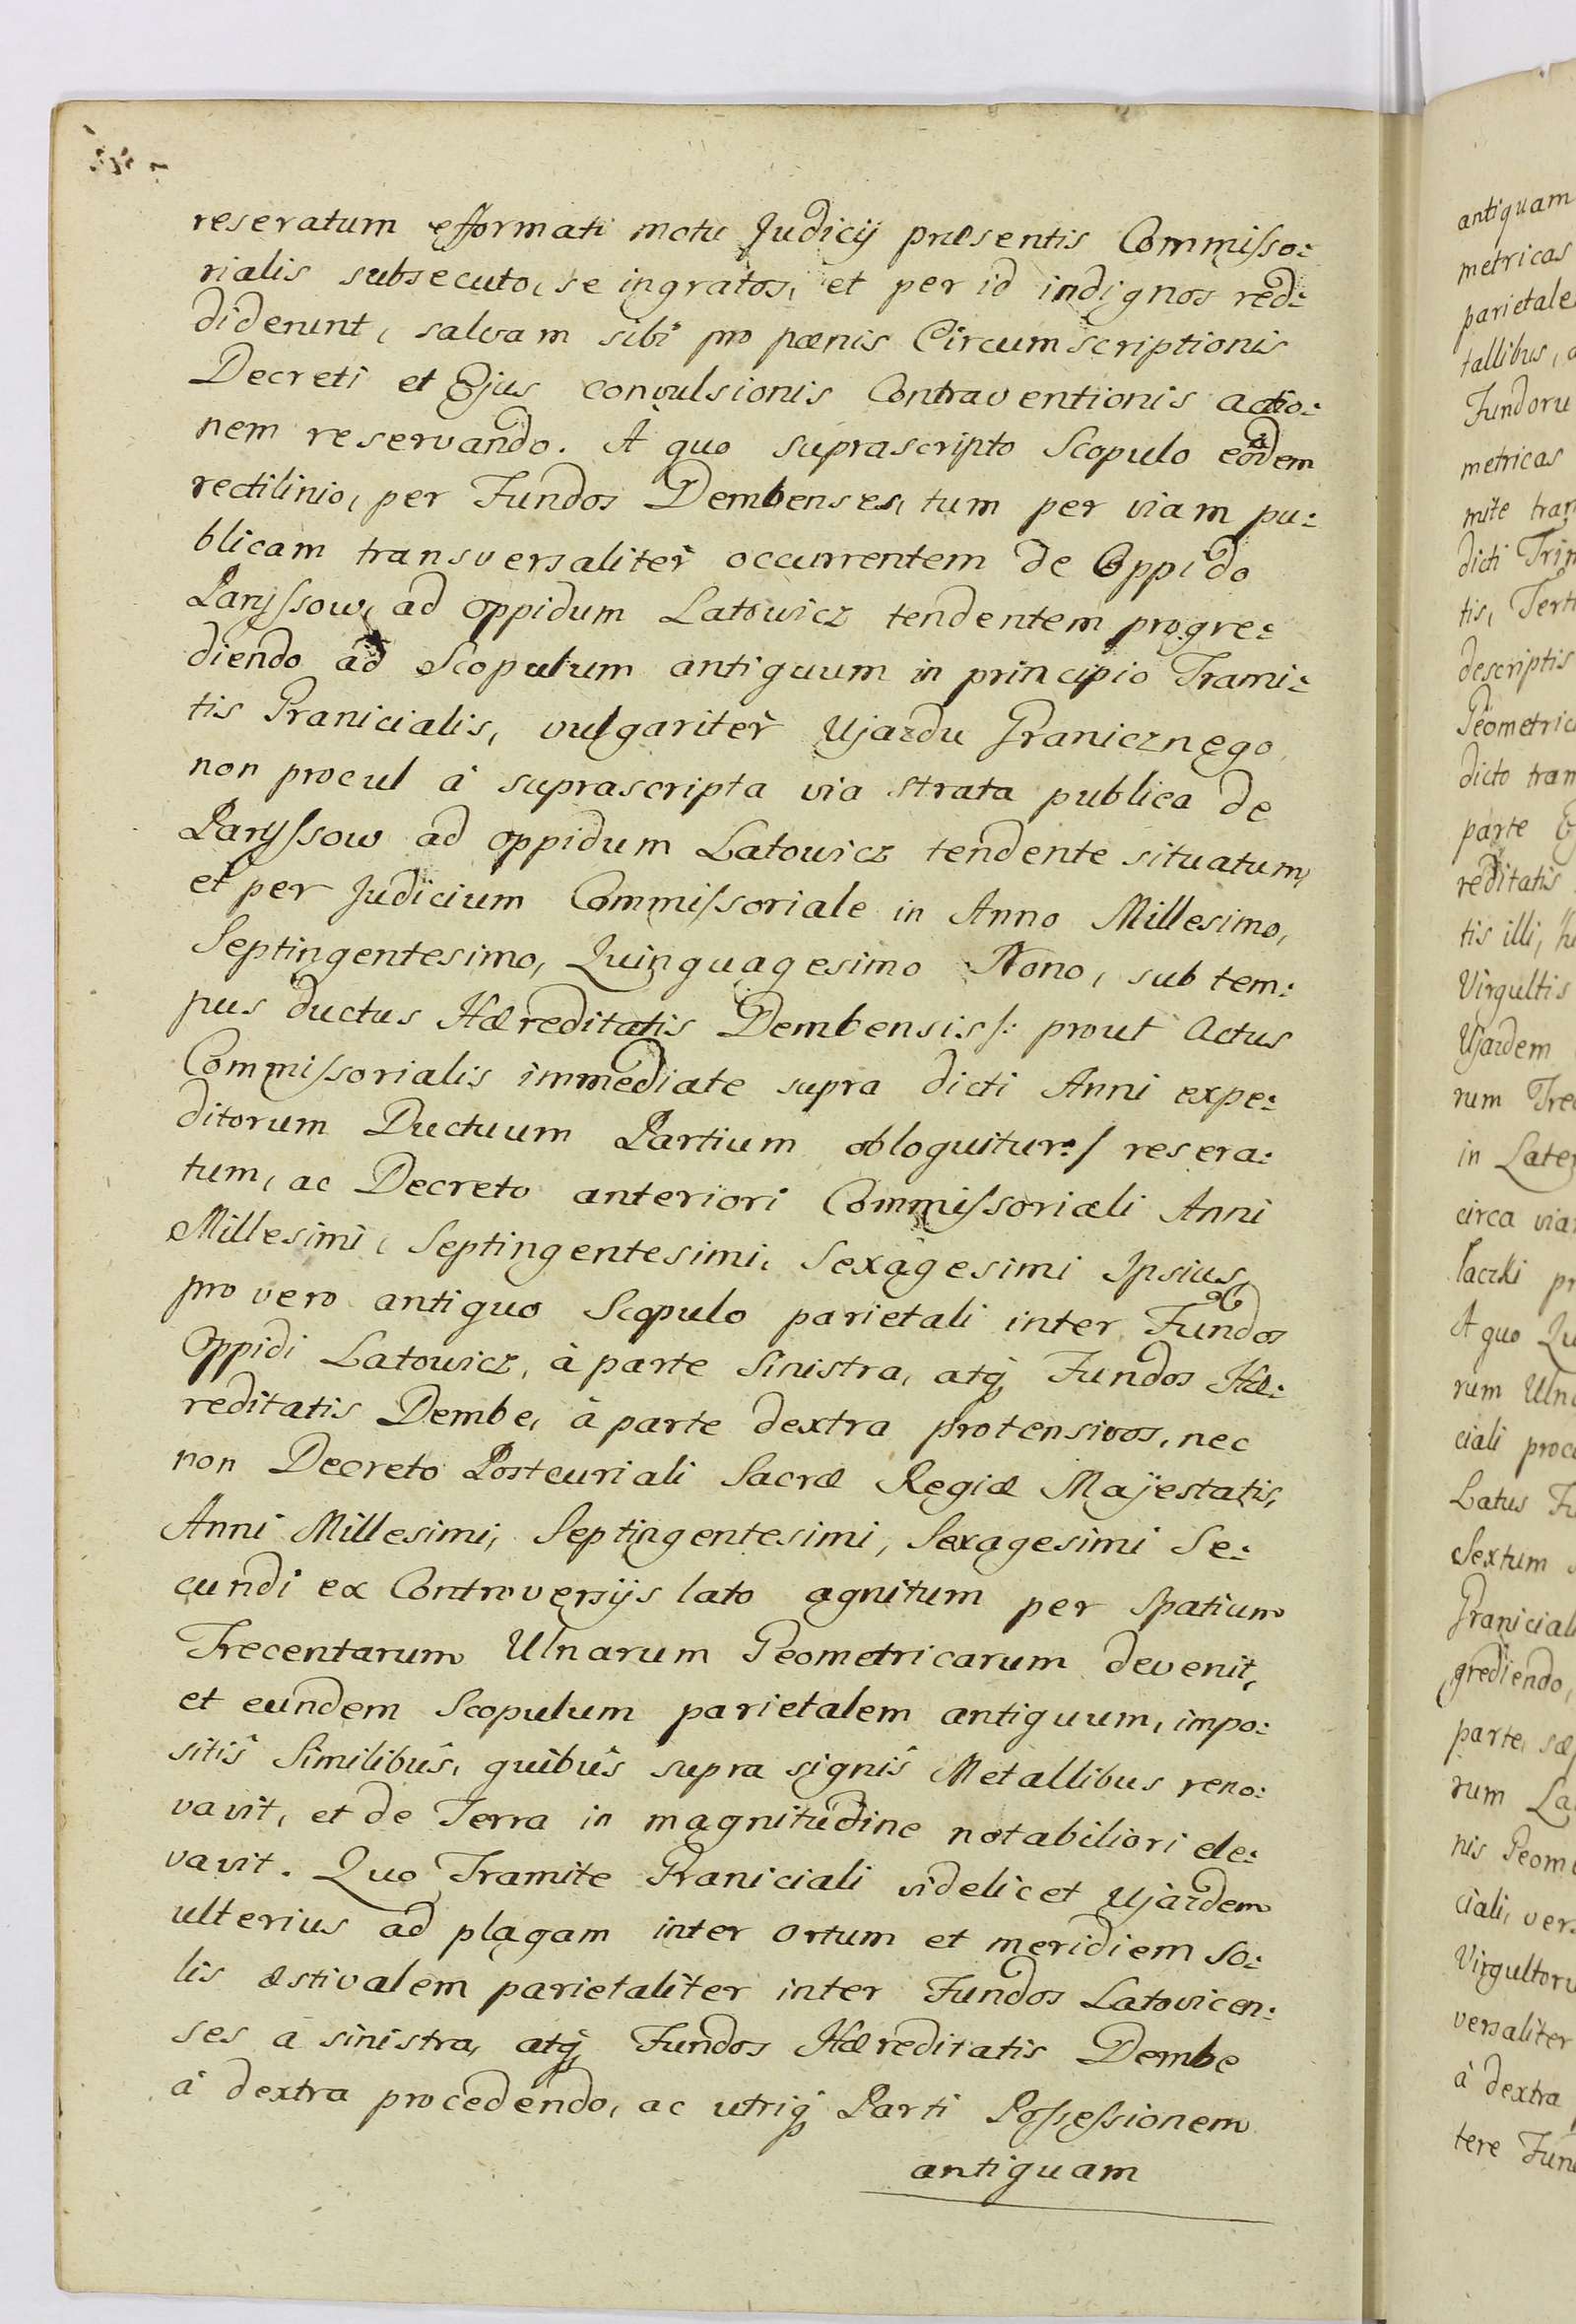 reseratum efformati motu Judicij præsentis Commisso:
rialis subsecuto, se ingratos, et per id indignos red:
diderunt, salvam sibi pro pænis Circumscriptionis
Decreti et Ejus convulsionis Contraventionis actio:
nem reservando. A quo suprascripto Scopulo eodem
rectilinio, per Fundos Dembenses, tum per viam pu:
blicam transversaliter occurrentem de Oppido
Parijssow, ad oppidum Latowicz tendentem progre:
diendo ad Scopulum antiquum in principio Trami:
tis Granicialis, vulgariter Ujazdu Granicznego
non procul à suprascripta via strata publica de
Parijssow ad oppidum Latowicz tendente situatum,
et per Judicium Commissoriale in Anno Millesimo,
Septingentesimo, Quinquagesimo Nono, sub tem:
pus ductus Hæreditatis Dembensis /: prout Actus
Commissorialis immediate supra dicti Anni expe:
ditorum Ductuum Partium obloquitur :/ resera:
tum, ac Decreto anteriori Commissoriali Anni
Millesimi, Septingentesimi, Sexagesimi Ipsius,
pro vero antiquo Scopulo parietali inter Fundos
Oppidi Latowicz, à parte sinistra, atq Fundos Hæ:
reditatis Dembe, à parte dextra protensivos, nec
non Decreto Postcuriali Sacræ Regiæ Majestatis,
Anni Millesimi, Septingentesimi, Sexagesimi Se:
cundi ex Controversijs lato agnitum per Spatium
Trecentarum Ulnarum Geometricarum devenit,
et eundem Scopulum parietalem antiquum, impo:
sitis Similibus, quibus supra signis Metallibus reno:
vavit, et de Terra in magnitudine notabiliori ele:
vavit. Quo Tramite Graniciali videlicet Ujazdem
ulterius ad plagam inter ortum et meridiem So:
lis æstivalem parietaliter inter Fundos Latovicen:
ses à sinistra, atq Fundos Hæreditatis Dembe
à dextra procedendo, ac utriq Parti Possessionem
antiquam
antiquam
metricas
parietale
tallibus,
Fundoru
metricas
mite tran
dicti Trin
tis, Terti
descriptis
Geometric
dicto tram
parte
reditatis
tis illi,
Virgultis
Ujazdem
rum Tre
in Late
circa via
łaczki pr
A quo Qu
rum Ulna
ciali proc
Latus Fu
Sextum
Granicial
grediendo,
parte, sæ
rum La
nis Geom
ciali, ver
Virgultoru
versaliter
à dextra
tere Fun